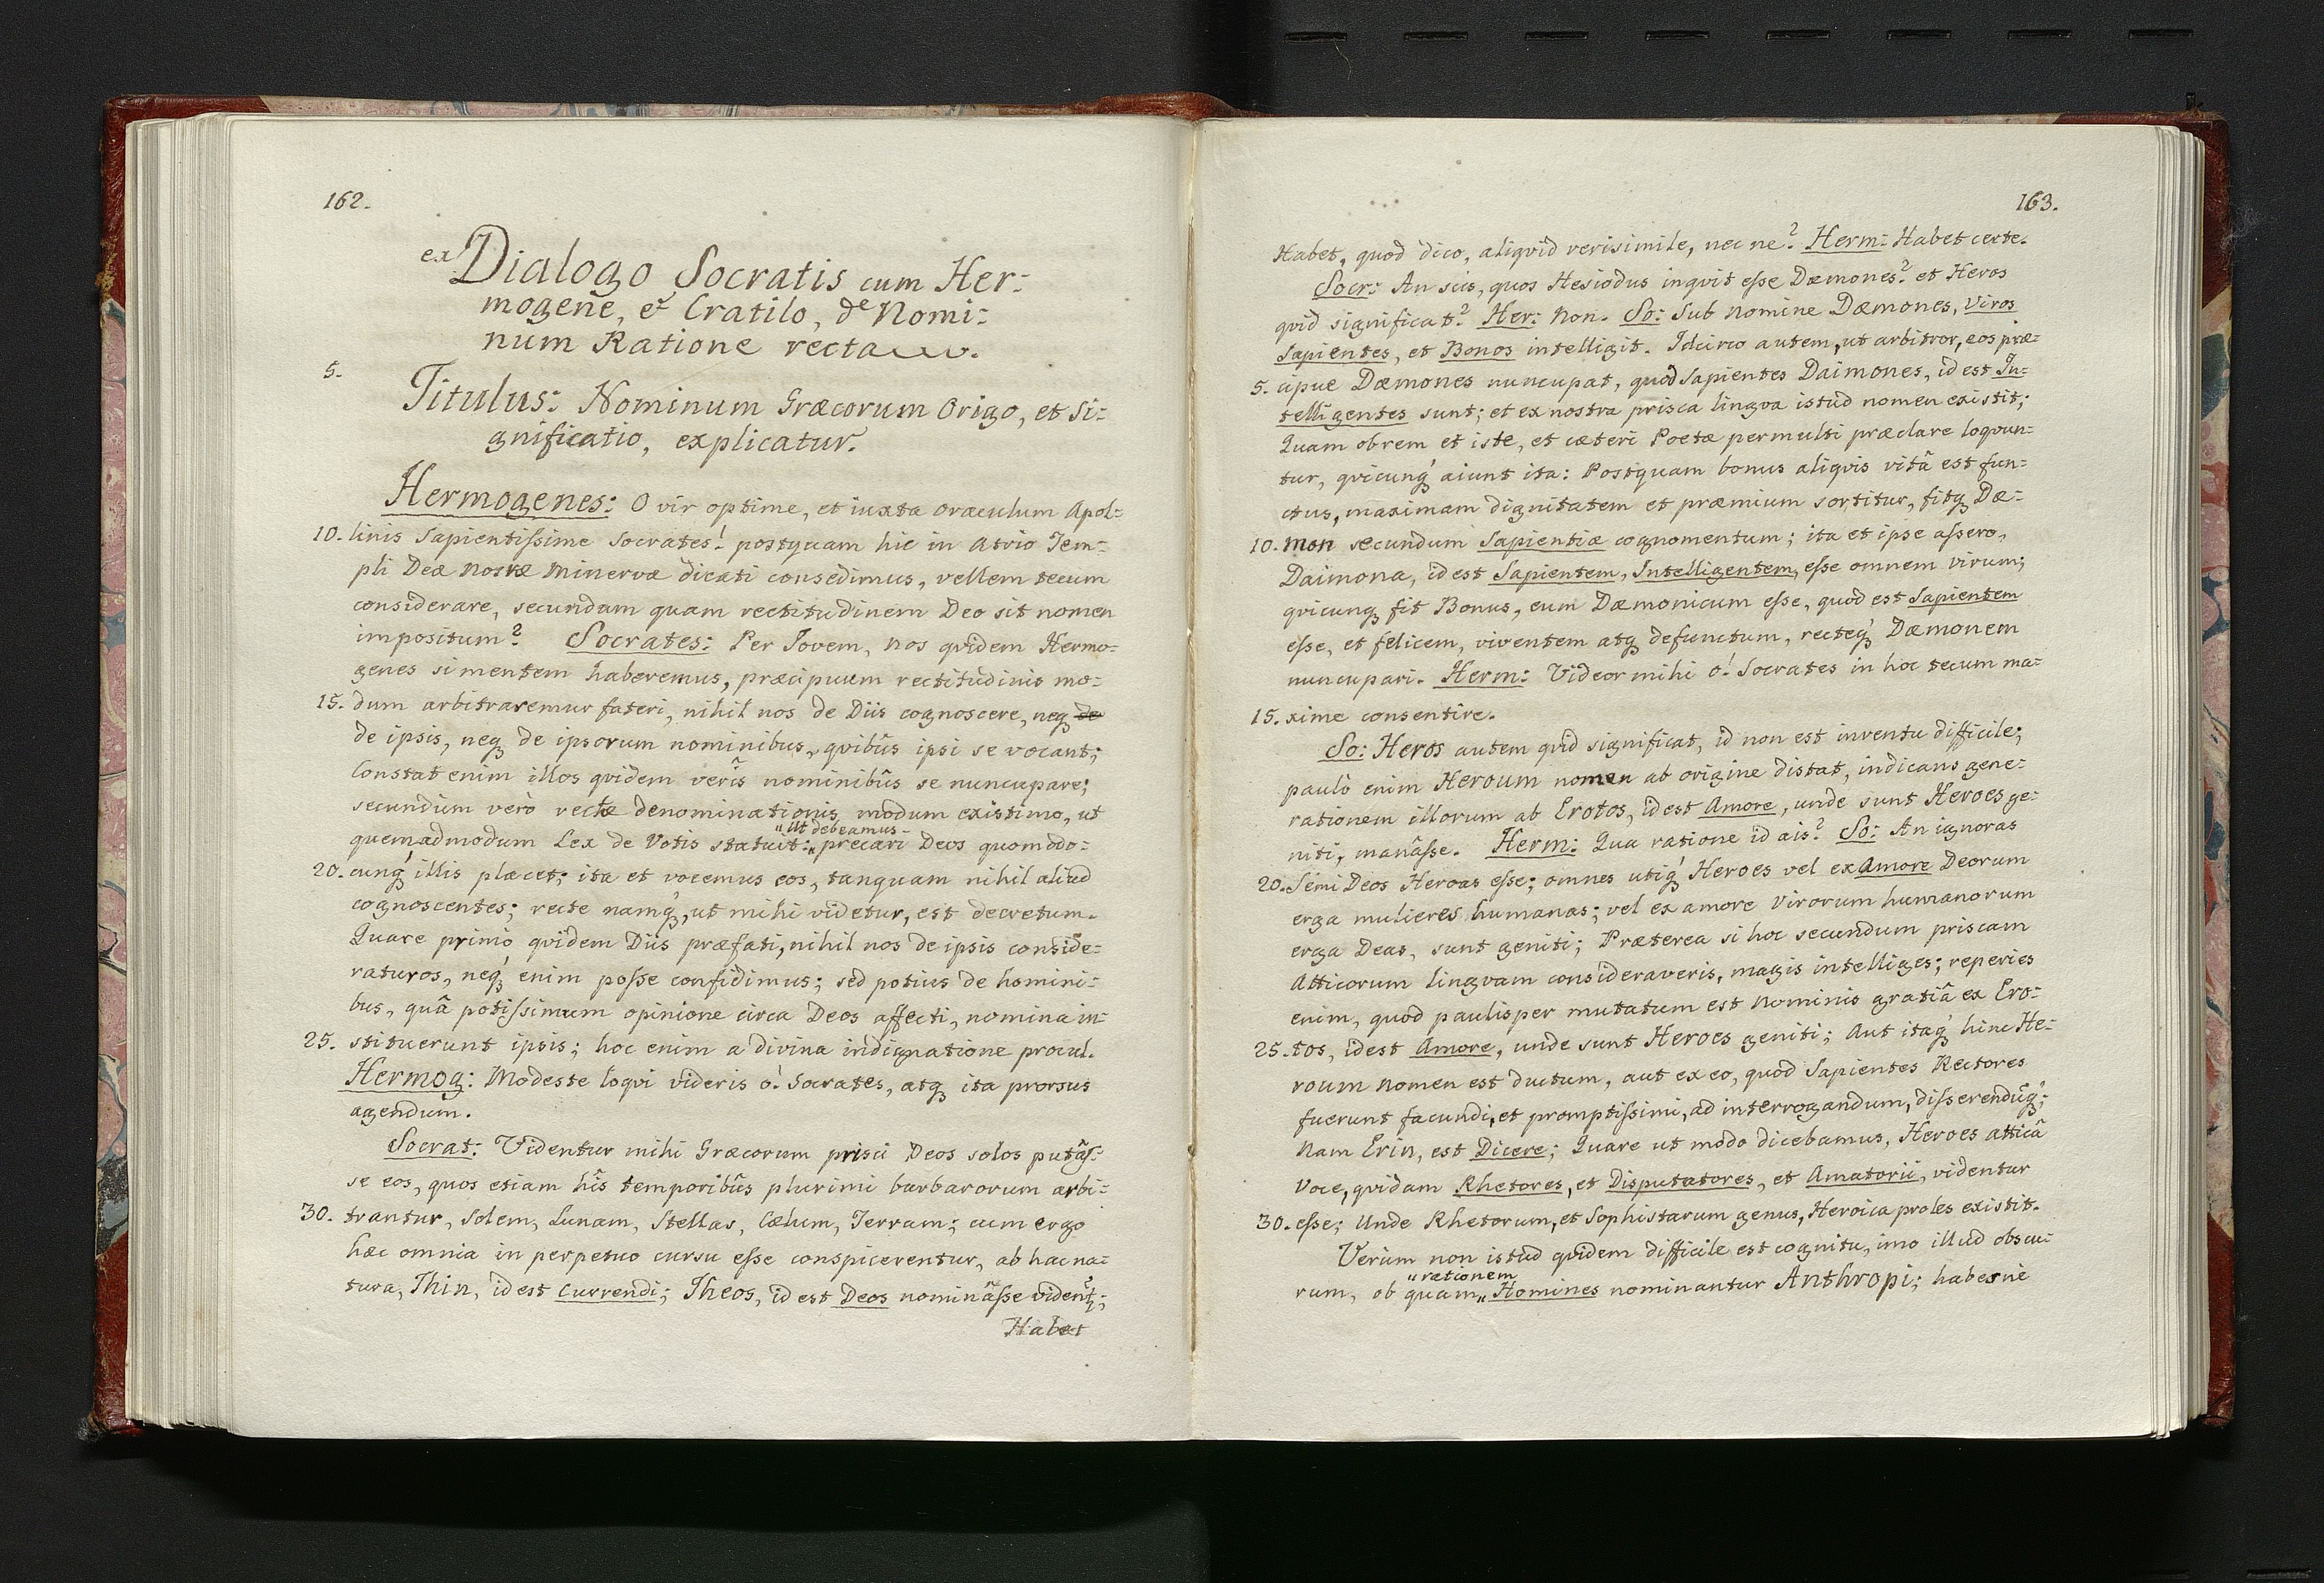 162.
ex Dialogo Socratis cum Her:
mogene, et Cratilo, de Nomi:
num Ratione recta
5.
Titulus: Nominum Græcorum Origo, et Si:
gnificatio, explicatur.
Hermogenes: O vir optime, et iuxta oraculum Apol:
10. linis Sapientissime Socrates! postquam hic in Atrio Tem:
pli Deæ Nostræ Minervæ dicati consedimus, vellem tecum
considerare, secundum quam rectitudinem Deo sit nomen
impositum? Socrates: Per Jovem, nos qvidem Hermo:
genes si mentem haberemus, præcipuum rectitudinis mo:
15. dum arbitraremur fateri, nihil nos de Diis cognoscere, neq de
de ipsis, neq de ipsorum nominibus, qvibûs ipsi se vocant;
Constat enim illos qvidem verîs nominibûs se nuncupare;
secundum verò rectæ denominationis modum existimo, ut
„ut debeamus
quemadmodum Lex de Votis statuit: „precari Deos quomodo:
20. cunq́ illis placet; ita et vocemus eos, tanquam nihil aliud
cognoscentes; recte namq́, ut mihi videtur, est decretum.
Quare primò qvidem Diis præfati, nihil nos de ipsis conside:
raturos, neq́ enim posse confidimus; sed potius de homini:
bus, quâ potissimum opinione circa Deos affecti, nomina in:
25. stituerunt ipsis; hoc enim a divina indignatione procul.
Hermog: Modeste loqvi videris ò! Socrates, atq ita prorsus
agendum.
Socrat: Videntur mihi Græcorum prisci Deos solos putâs:
se eos, quos etiam hîs temporibûs plurimi barbarorum arbi:
30. trantur, Solem, Lunam, Stellas, Cælum, Terram; cum ergo
hæc omnia in perpetuo cursu esse conspicerentur, ab hac na:
tura, Thin, id est Currendi; Theos, id est Deos nominâsse vident̃;
Habet
163.
Habet, quod dico, aliqvid verisimile, nec ne? Herm: Habet certe.
Socr: An scis, quos Hesiodus inqvit esse Dæmones? et Heros
qvid significat? Her: Non. So: Sub nomine Dæmones, Viros
Sapientes, et Bonos intelligit. Idcirco autem, ut arbitror, eos præ:
5. cipue Dæmones nuncupat, quòd Sapientes Daimones, id est In:
telligentes sunt; et ex nostra prisca lingva istud nomen existit;
Quam obrem et iste, et cæteri Poetæ permulti præclare loqvun:
tur, qvicunq́ aiunt ita: Postquam bonus aliqvis vitâ est fun:
ctus, maximam dignitatem et præmium sortitur, fitq Dæ:
10. mon secundum Sapientiæ cognomentum; ita et ipse assero,
Daimona, id est Sapientem, Intelligentem, esse omnem virum;
qvicunq fit Bonus, eum Dæmonicum esse, quod est Sapientem
esse, et felicem, viventem atq defunctum, recteq́ Dæmonem
nuncupari. Herm: Videor mihi ò! Socrates in hoc tecum ma:
15. xime consentire.
So: Heros autem qvid significat, id non est inventu difficile;
paulò enim Heroum nomen ab origine distat, indicans gene:
rationem illorum ab Erotos, id est Amore, unde sunt Heroes ge:
niti, manâsse. Herm: Qua ratione id ais? So: An ignoras
20. Semi Deos Heroas esse; omnes utiq́ Heroes vel ex Amore Deorum
erga mulieres humanas; vel ex amore Virorum humanorum
erga Deas, sunt geniti; Præterea si hoc secundum priscam
Atticorum lingvam consideraveris, magis intelliges; reperies
enim, quod paulisper mutatum est Nominis gratiâ ex Ero:
25. tos, id est Amore, unde sunt Heroes geniti; Aut itaq́ hinc He:
roum Nomen est ductum, aut ex eo, quòd Sapientes Rectores
fuerunt facundi, et promptissimi, ad interrogandum, disserendũq́;
Nam Erin, est Dicere; Quare ut modo dicebamus, Heroes atticâ
Voce, qvidam Rhetores, et Disputatores, et Amatorii, videntur
30. esse; Unde Rhetorum, et Sophistarum genus, Heroica proles existit.
Verum non istud qvidem difficile est cognitu, imo illud obscu:
„rationem
rum, ob quam „Homines nominantur Anthropi; habesne